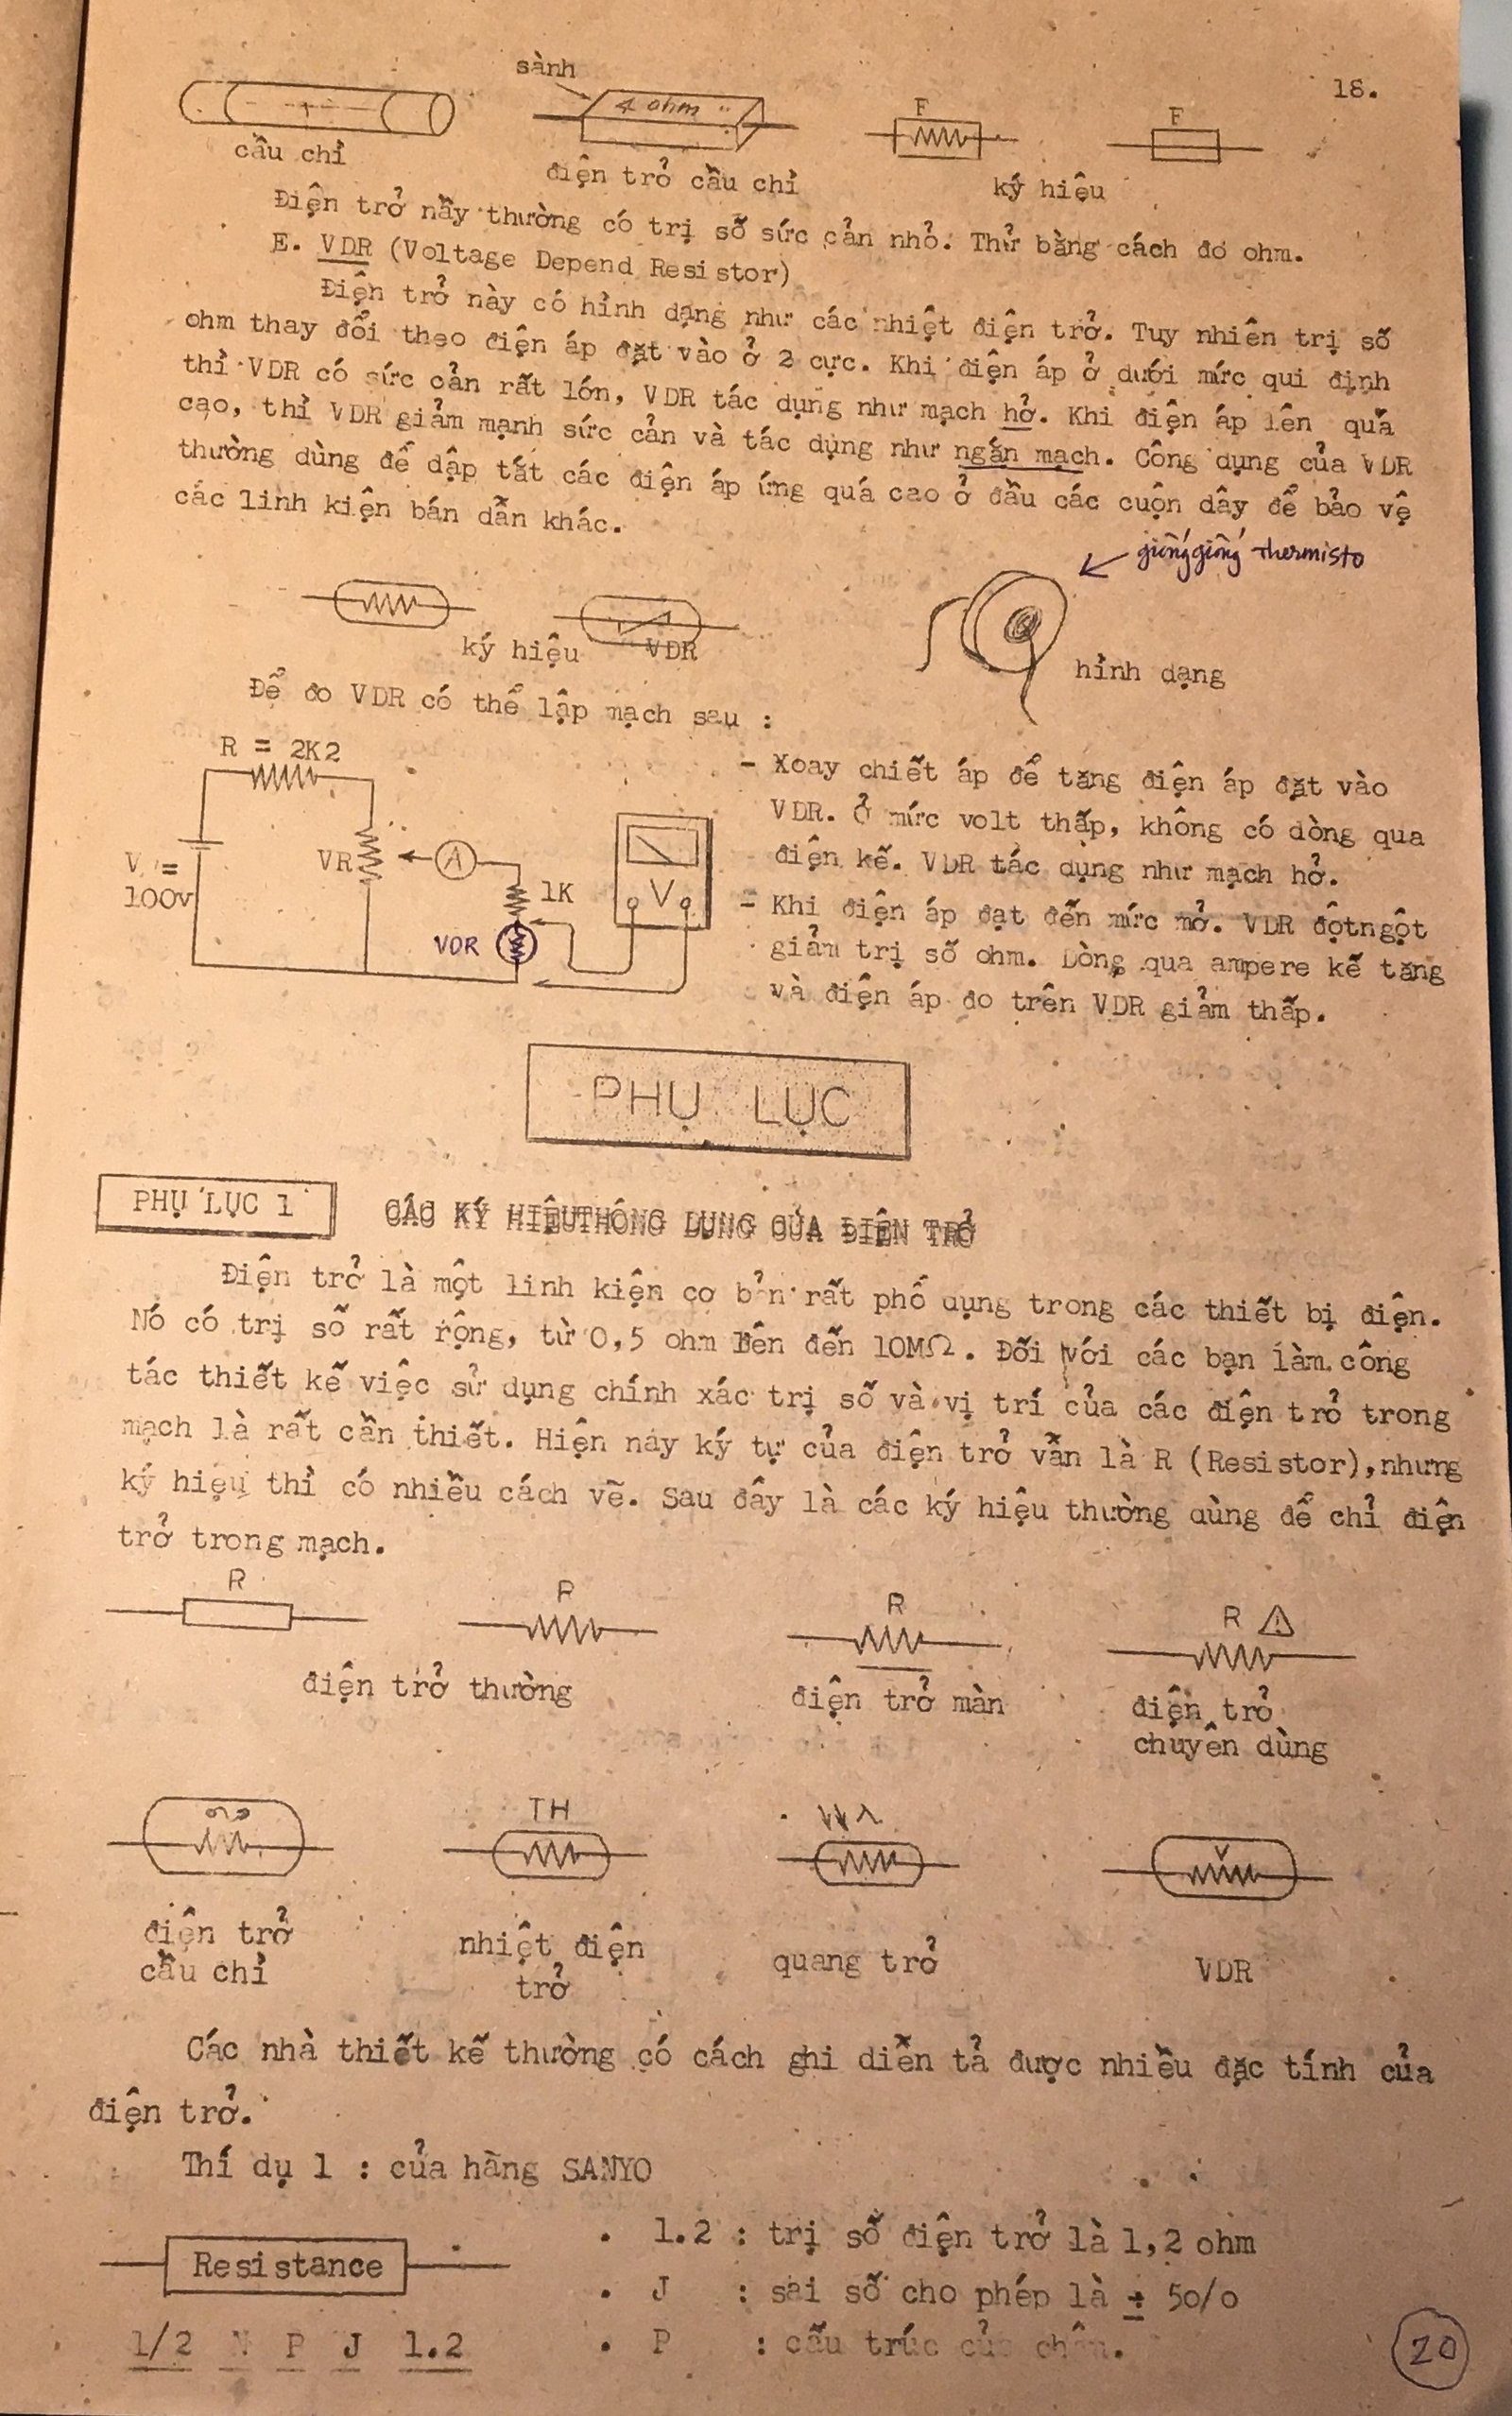 18.
sành
4 ohm
F
F
cầu chì
điện trở cầu chì
ký hiệu
Điện trở nầy thường có trị số sức cản nhỏ. Thử bằng cách đo ohm.
E. VDR (Voltage Depend Resistor)
Điện trở này có hình dạng như các nhiệt điện trở. Tuy nhiên trị số
ohm thay đổi theo điện áp đặt vào ở 2 cực. Khi điện áp ở dưới mức qui định
thì VDR có sức cản rất lớn, VDR tác dụng như mạch hở. Khi điện áp lên quá
cao, thì VDR giảm mạnh sức cản và tác dụng như ngắn mạch. Công dụng của VDR
thường dùng để dập tắt các điện áp ứng quá cao ở đầu các cuộn dây để bảo vệ
các linh kiện bán dẫn khác.
giống giống thermisto
ký hiệu
VDR
hình dạng
Để đo VDR có thể lập mạch sau :
R = 2K2
V =
100v
VR
A
1K
V
VDR
- Xoay chiết áp để tăng điện áp đặt vào
VDR. Ở mức volt thấp, không có dòng qua
điện kế. VDR tác dụng như mạch hở.
- Khi điện áp đạt đến mức mở. VDR độtngột
giảm trị số ohm. Dòng qua ampere kế tăng
và điện áp đo trên VDR giảm thấp.
PHỤ LỤC
PHỤ LỤC 1
CÁC KÝ HIỆUTHÔNG DỤNG CỦA ĐIỆN TRỞ
Điện trở là một linh kiện cơ bản rất phổ dụng trong các thiết bị điện.
Nó có trị số rất rộng, từ 0,5 ohm lên đến 10MΩ. Đối với các bạn làm công
tác thiết kế việc sử dụng chính xác trị số và vị trí của các điện trở trong
mạch là rất cần thiết. Hiện nay ký tự của điện trở vẫn là R (Resistor),nhưng
ký hiệu thì có nhiều cách vẽ. Sau đây là các ký hiệu thường dùng để chỉ điện
trở trong mạch.
R
R
R
R ⚠
điện trở thường
điện trở màn
điện trở
chuyên dùng
TH
λ
V
điện trở
cầu chì
nhiệt điện
trở
quang trở
VDR
Các nhà thiết kế thường có cách ghi diễn tả được nhiều đặc tính của
điện trở.
Thí dụ 1 : của hãng SANYO
Resistance
1/2 N P J 1.2
. 1.2 : trị số điện trở là 1,2 ohm
. J : sai số cho phép là ± 5o/o
. P : cấu trúc của chân.
20